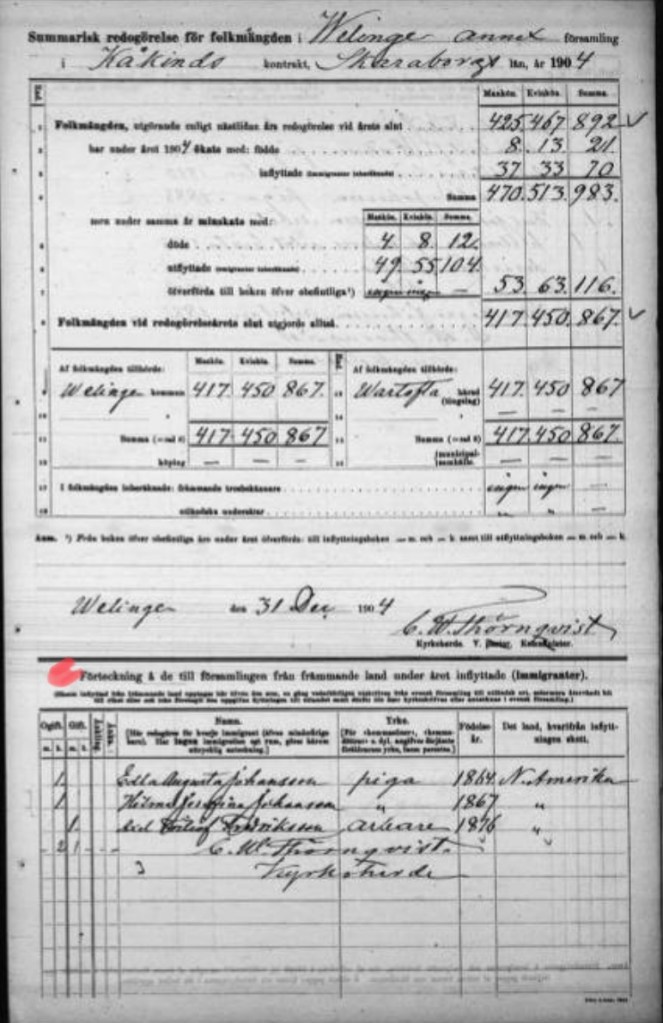 Summarisk redogörelse för folkmängden i Welinge annex församling
i Kåkinds kontrakt, Skaraborgs län, år 1904
Mankön. Kvinkön. Summa.
1 Folkmängden, utgörande enligt nästlidna års redogörelse vid årets slut 425. 467. 892 ✓
2 har under året 1904 ökats med: födde 8. 13. 21.
3 inflyttade (immigranter inberäknade) 37 33 70
4 Summa 470. 513. 983.
men under samma år minskats med: Mankön. Kvinkön. Summa.
5 döde 4. 8. 12.
6 utflyttade (emigranter inberäknade) 49 55 104.
7 öfverförda till boken öfver obefintliga ¹) ingen ingen — 53. 63. 116.
8 Folkmängden vid redogörelseårets slut utgjorde alltså 417. 450. 867. ✓
Af folkmängden tillhörde: Mankön. Kvinkön. Summa. Af folkmängden tillhörde:
9 Welinge kommun 417. 450 867. 13 Wartofta härad (tingslag) 417. 450 867
10 „ 14 „ — — —
11 Summa (= rad 8) 417. 450 867 15 Summa (= rad 8) 417. 450. 867.
12 köping — — — 16 (municipal-samhälle. — — —
17 I folkmängden inberäknade: främmande trosbekännare ingen ingen —
18 utländska undersåtar „ „ —
Anm. ¹) Från boken öfver obefintliga äro under året öfverförda: till inflyttningsboken — m. och — k. samt till utflyttningsboken — m. och — k.
Welinge den 31 Dec 1904
C. W. Thörnqvist
Kyrkoherde.
Förteckning å de till församlingen från främmande land under året inflyttade (Immigranter).
Ogift. Gift. Namn. Yrke. Födelse-år. Det land, hvarifrån inflyttningen skett.
m. k. m. k.
1 Edla Augusta Johansson piga 1864. N. Amerika
1 Hilma Josefina Johansson „ 1867 „
1. Axel Fredriksson arbetare 1876 „
2 1 C. W. Thörnqvist
3 Kyrkoherde